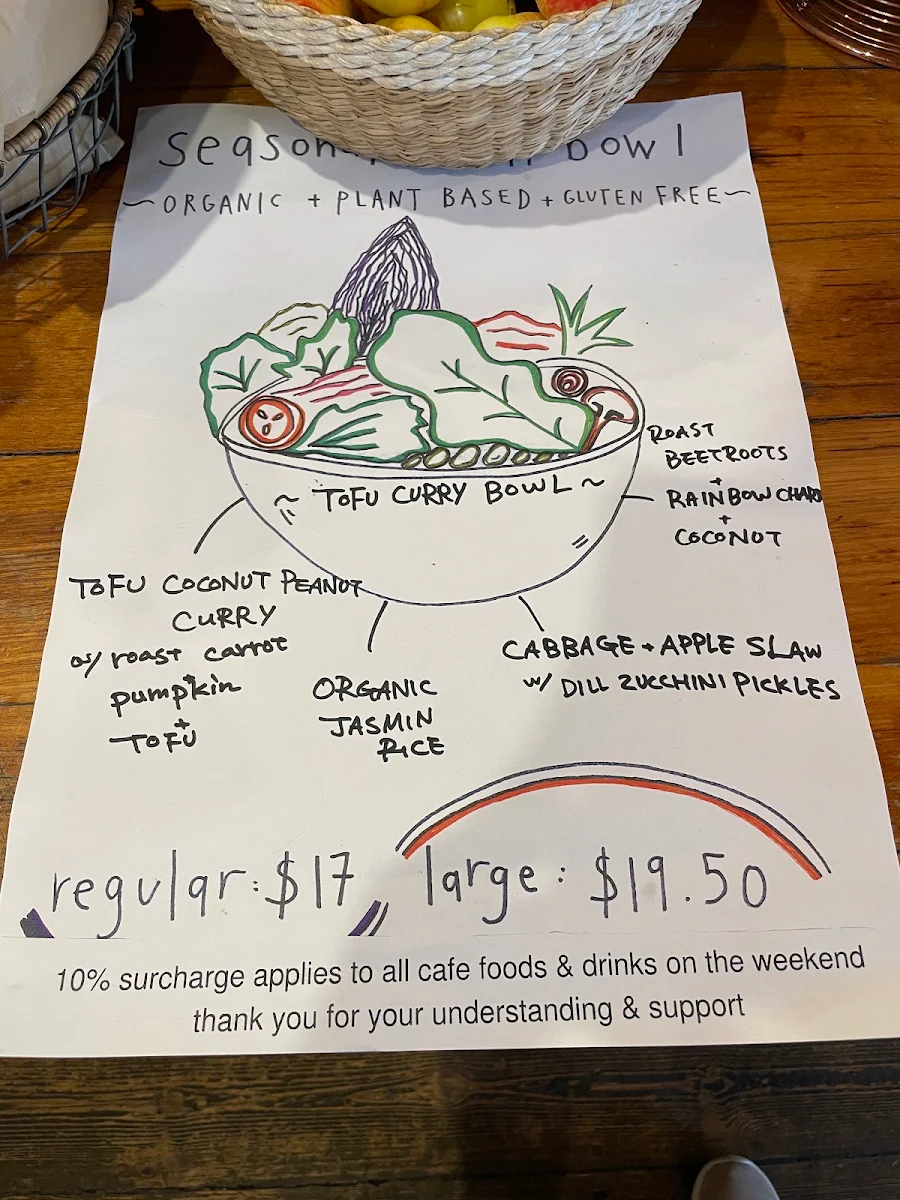 bowl
~ORGANIC + PLANT BASED + GLUTEN FREE~
~ TOFU CURRY BOWL ~
ROAST
BEETROOTS
+
RAINBOW CHARD
+
COCONUT
TOFU COCONUT PEANUT
CURRY
w/ roast carrot
pumpkin
+
TOFU
ORGANIC
JASMIN
RICE
CABBAGE + APPLE SLAW
w/ DILL ZUCCHINI PICKLES
regular: $17
large: $19.50
10% surcharge applies to all cafe foods & drinks on the weekend
thank you for your understanding & support